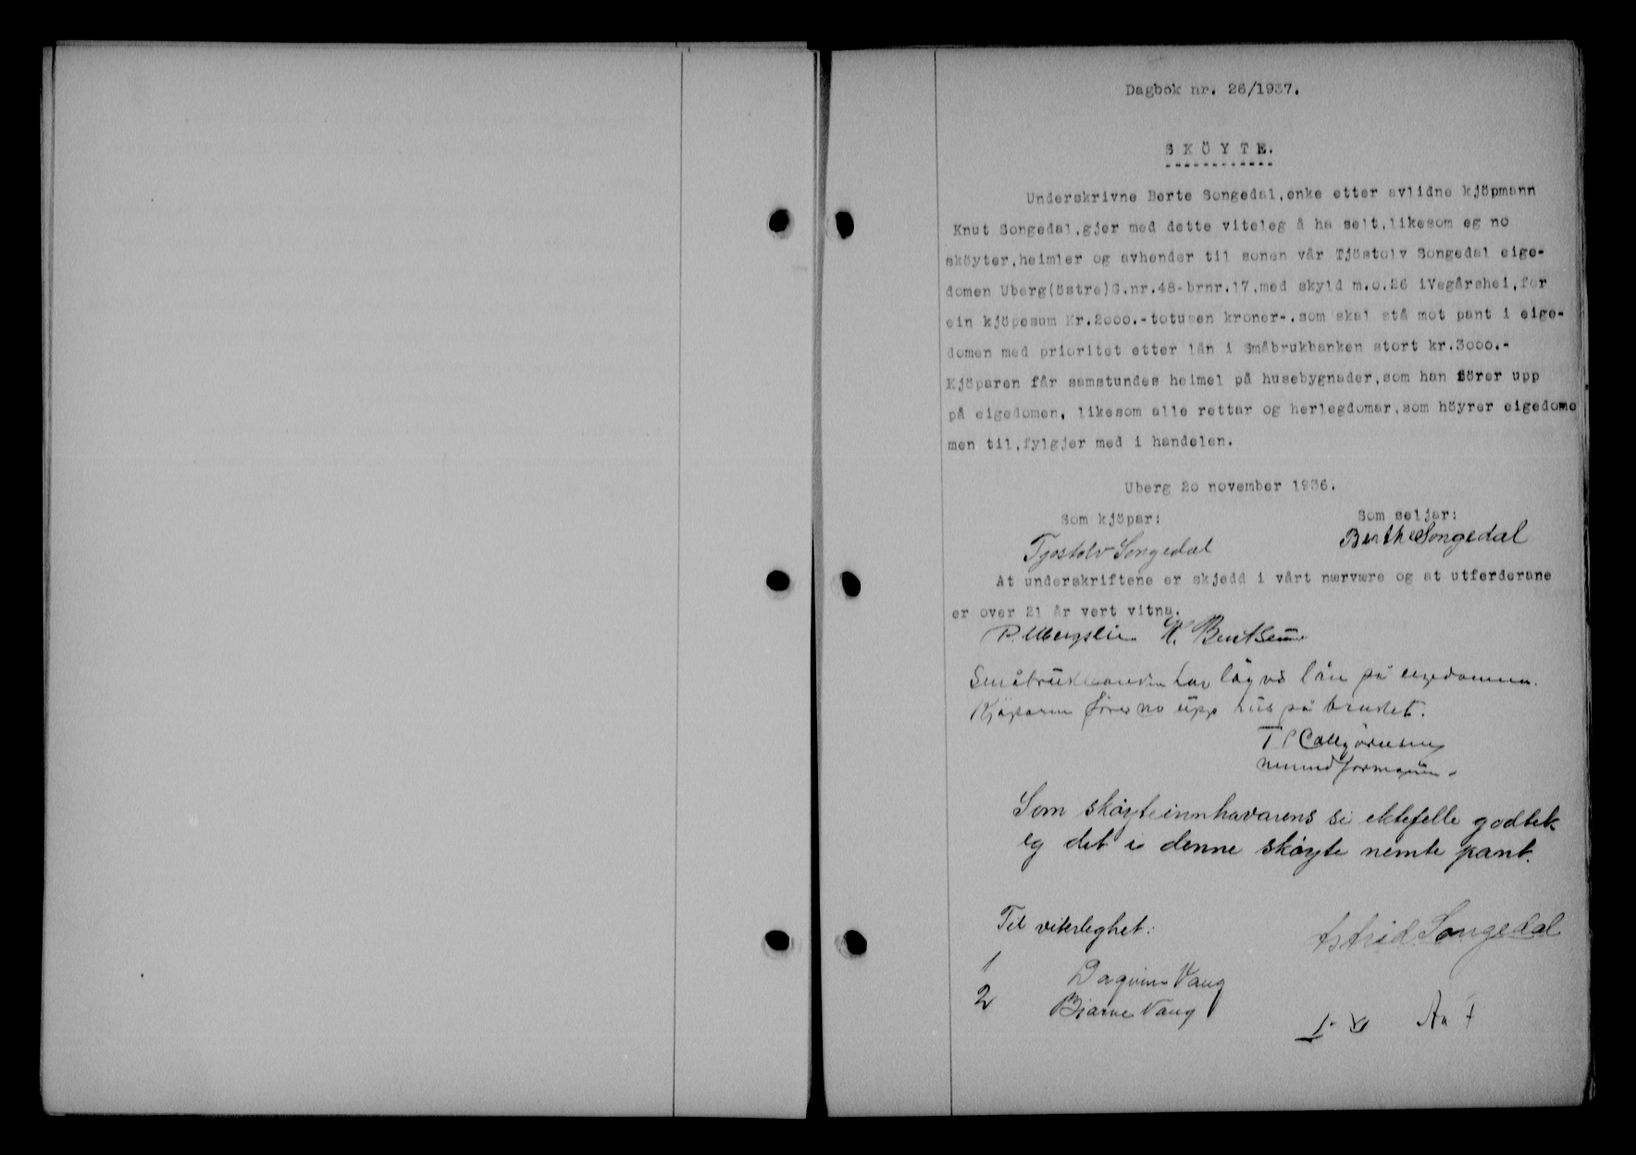 Dagbok nr. 26/1937.
S K Ö Y T E.
Underskrivne Berte Songedal,enke etter avlidne kjöpmann
Knut Songedal,gjer med dette viteleg å ha selt,likesom eg no
sköyter,heimler og avhender til sonen vår Tjöstolv Songedal eige-
domen Uberg(östre)G.nr.48-brnr.17,med skyld m.o.26 iVegårshei,for
ein kjöpesum Kr.2ooo.-totusen kroner-.som skal stå mot pant i eige-
domen med prioritet etter lån i Småbrukbanken stort kr.3ooo.-
Kjöparen får samstundes heimel på husebygnader,som han förer upp
på eigedomen, likesom alle rettar og herlegdomar,som höyrer eigedome
men til,fylgjer med i handelen.
Uberg 2o november 1936.
Som kjöpar: Som seljar:
Tjostolv Songedal Berthe Songedal
At underskriftene er skjedd i vårt nærvære og at utferderane
er over 21 år vert vitna.
H. Bentsen
Småbrukbanken har lån på eigedomen.
Kjøparen fører no upp hus på bruket.
Som skøyteinnhavarens si ektefelle godtek
eg det i denne skøyte nemte pant.
Til viterleghet: Astrid Songedal
1 Dagfinn Vaag
2 Bjarne Vaag